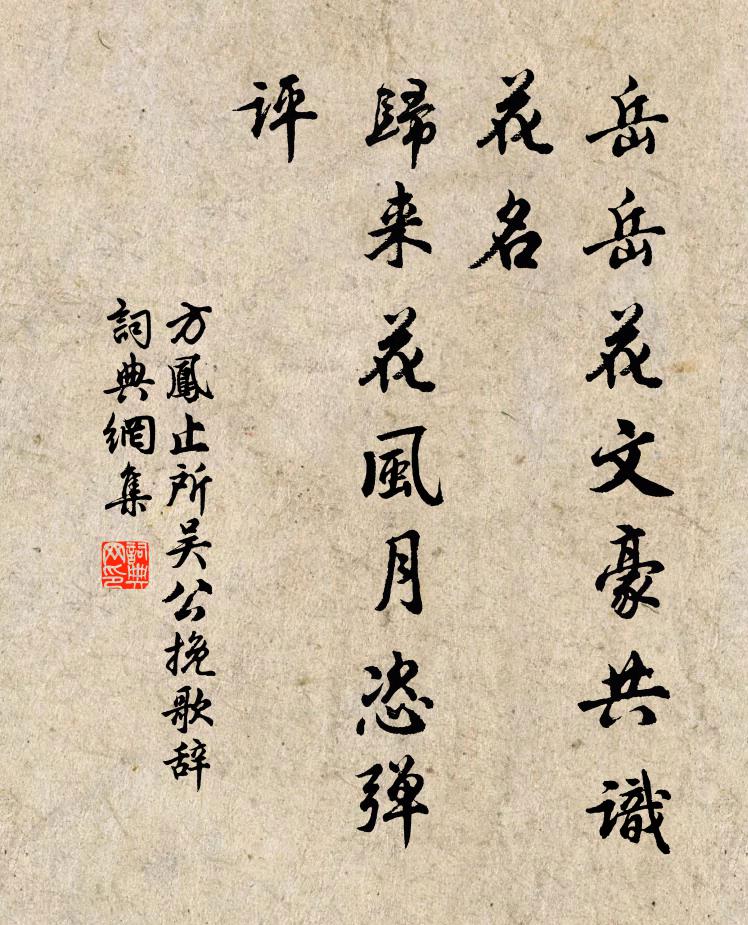 岳岳花文豪共識
花名
歸来花風月恣弹
評
方鳳止所吴公挽歌辞
詞典網集
詞典
网印